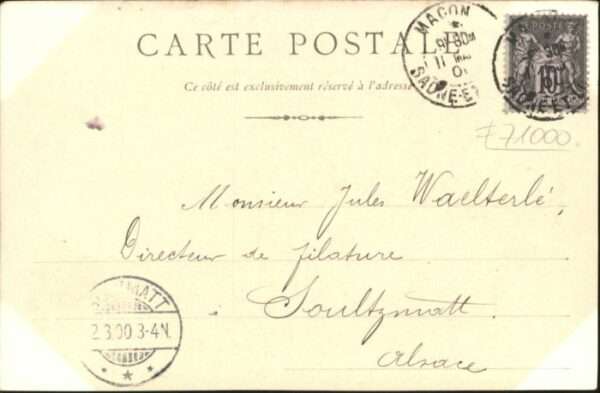 CARTE POSTALE
Ce côté est exclusivement réservé à l'adresse
MACON
11
SAÔNE-ET
POSTE
10
71000
Monsieur Jules Waelterlé,
Directeur de filature
Soultzmatt.
Alsace
MATT
2.3.00.3-4N.